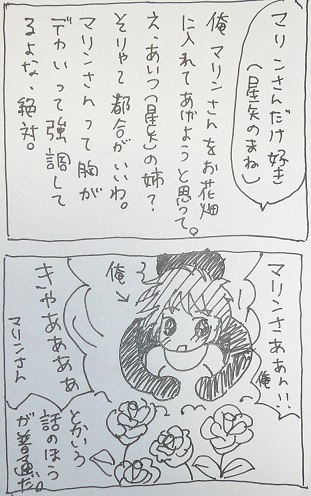 マリンさんだけ好き
(星矢のまね)
俺 マリンさんをお花畑
に入れてあげようと思って。
え、あいつ(星矢)の姉?
そりゃて都合がいいわ。
マリンさんって胸が
デカいって強調して
るよな、絶対。
マリンさああん!!
俺
俺
きゃああああ
マリンさん
とかいう
話のほう
が普通だ。